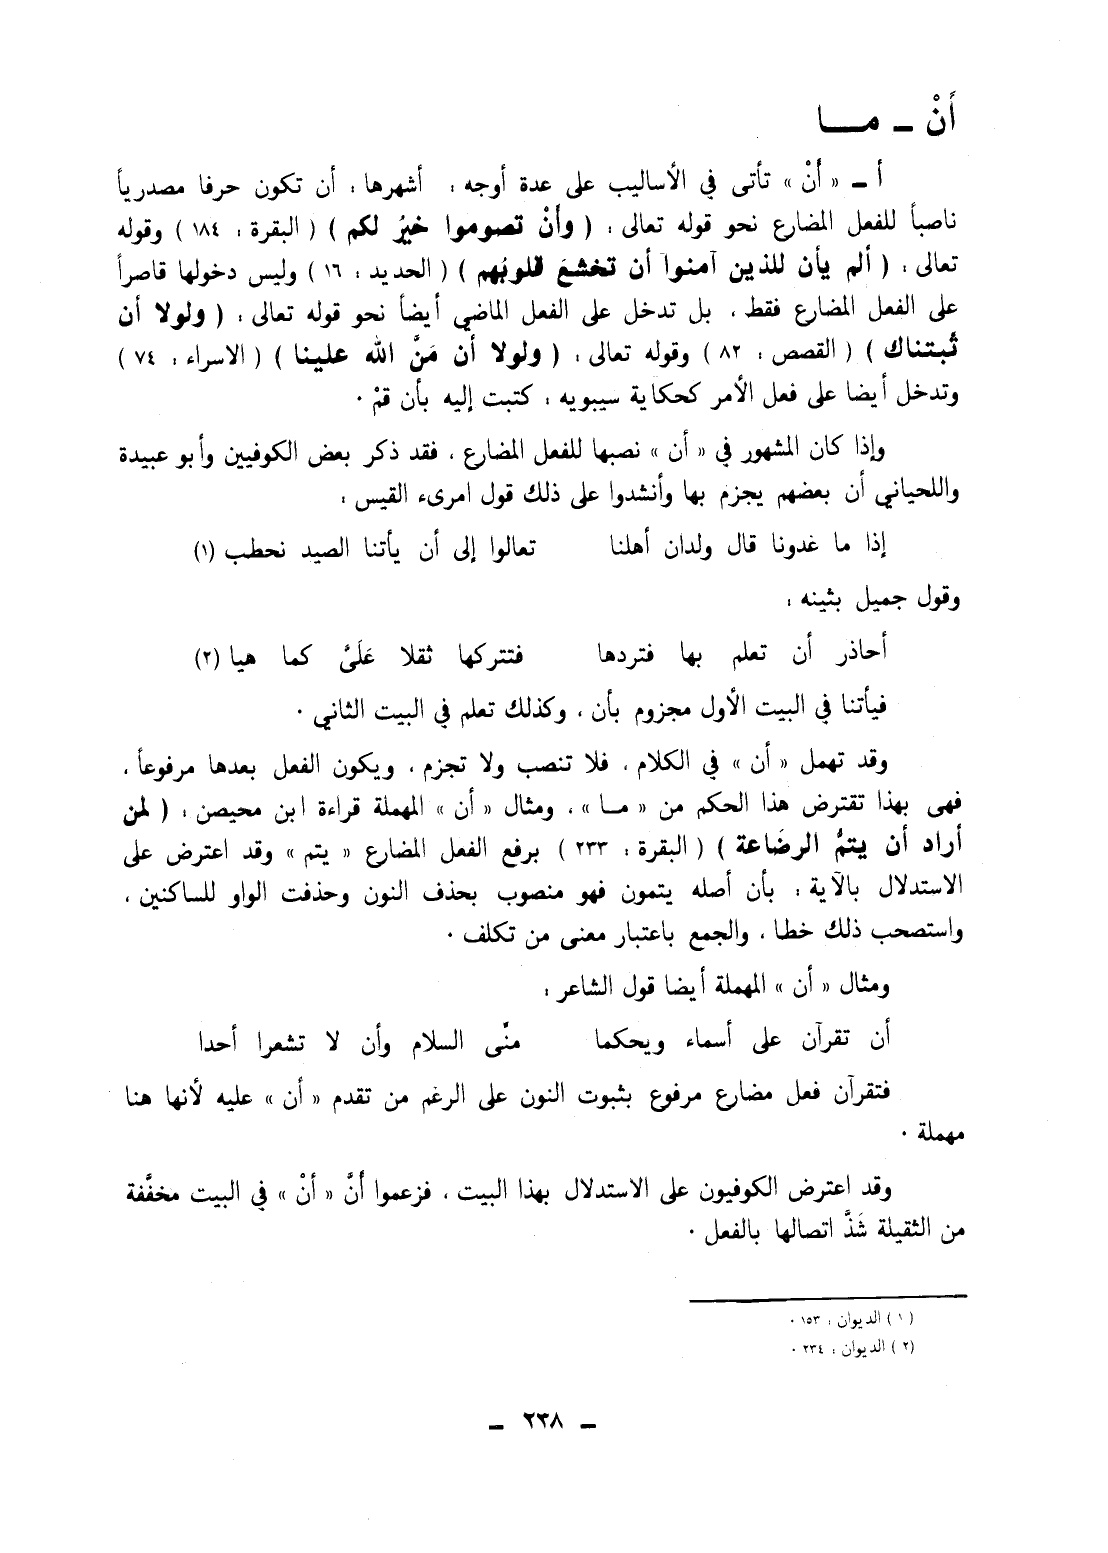 أَنْ ــ مـــا
أ ــ « أَنْ » تأتى في الأساليب على عدة أوجه : أشهرها : أن تكون حرفا مصدرياً
ناصباً للفعل المضارع نحو قوله تعالى : ( وأَنْ تصوموا خيرُ لكم ) ( البقرة : ١٨٤ ) وقوله
تعالى : ( ألم يأن للذين آمنوا أن تخشعَ قلوبُهم ) ( الحديد : ١٦ ) وليس دخولها قاصراً
على الفعل المضارع فقط ، بل تدخل على الفعل الماضي أيضاً نحو قوله تعالى : ( ولولا أن
ثَبتناك ) ( القصص : ٨٢ ) وقوله تعالى : ( ولولا أن مَنَّ الله علينا ) ( الاسراء : ٧٤ )
وتدخل أيضا على فعل الأمر كحكاية سيبويه : كتبت إليه بأن قمْ ٠
وإذا كان المشهور في « أن » نصبها للفعل المضارع ، فقد ذكر بعض الكوفيين وأبو عبيدة
واللحياني أن بعضهم يجزم بها وأنشدوا على ذلك قول امرىء القيس :
إذا ما غدونا قال ولدان أهلنا تعالوا إلى أن يأتنا الصيد نحطب (١)
وقول جميل بثينه :
أحاذر أن تعلم بها فتردها فتتركها ثقلا عَلَىَّ كما هيا (٢)
فيأتنا في البيت الأول مجزوم بأن ، وكذلك تعلم في البيت الثاني ٠
وقد تهمل « أن » في الكلام ، فلا تنصب ولا تجزم ، ويكون الفعل بعدها مرفوعاً ،
فهى بهذا تقترض هذا الحكم من « مــا » ، ومثال « أن » المهملة قراءة ابن محيصن : ( لمن
أراد أن يتمُّ الرضَاعة ) ( البقرة : ٢٣٣ ) برفع الفعل المضارع « يتم » وقد اعترض على
الاستدلال بالآية : بأن أصله يتمون فهو منصوب بحذف النون وحذفت الواو للساكنين ،
واستصحب ذلك خطا ، والجمع باعتبار معنى من تكلف ٠
ومثال « أن » المهملة أيضا قول الشاعر :
أن تقرآن على أسماء ويحكما منَّى السلام وأن لا تشعرا أحدا
فتقرآن فعل مضارع مرفوع بثبوت النون على الرغم من تقدم « أن » عليه لأنها هنا
مهملة ٠
وقد اعترض الكوفيون على الاستدلال بهذا البيت ، فزعموا أَنَّ « أنْ » في البيت مخفَّفة
من الثقيلة شَذَّ اتصالها بالفعل ٠
( ١ ) الديوان : ١٥٣ ٠
(٢ ) الديوان : ٢٣٤ ٠
ــ ٢٣٨ ــ